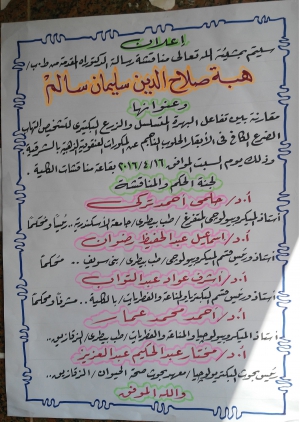 إعلان
سيتم بمشيئة الله تعالى مناقشة رسالة الدكتوراه المقدمة من ط.ب/
هبة صلاح الدين سليمان سالم
وعنوانها
مقارنة بين تفاعل البلمرة المتسلسل والزرع البكتيرى لتشخيص التهاب
الضرع الكافى فى الأبقار الحلوب الناجم عن المكورات العنقودية الذهبية بالشرقية
وذلك يوم السبت الموافق ٢٠١٦/٤/١٦ بقاعة مناقشات الكلية.
لجنة الحكم والمناقشة
أ.د/ حلمى أحمد تركى
أستاذ الميكروبيولوجى المتفرغ - طب بيطرى / جامعة الأسكندرية .. رئيساً ومحكماً
أ.د/ اسماعيل عبد الحفيظ رضوان
أستاذ ورئيس قسم الميكروبيولوجى - طب بيطرى - بنى سويف .. محكماً
أ.د/ أشرف عواد عبد التواب
أستاذ ورئيس قسم البكتريا والمناعة والفطريات / بالكلية .. مشرفاً ومحكماً
أ.د/ أحمد محمد عمار
أستاذ الميكروبيولوجيا والمناعة والفطريات / طب بيطرى / الزقازيق..
أ.د/ مختار عبد الحليم عبد العزيز
رئيس بحوث البكتريولوجيا / معهد بحوث صحة الحيوان / الزقازيق..
والله الموفق